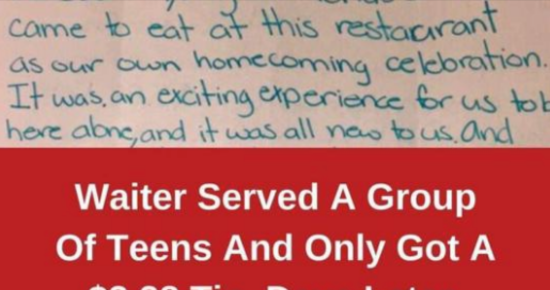 came to eat at this restaurant
as our own homecoming celebration.
It was an exciting experience for us to
here alone, and it was all new to us. And
Waiter Served A Group
Of Teens And Only Got A